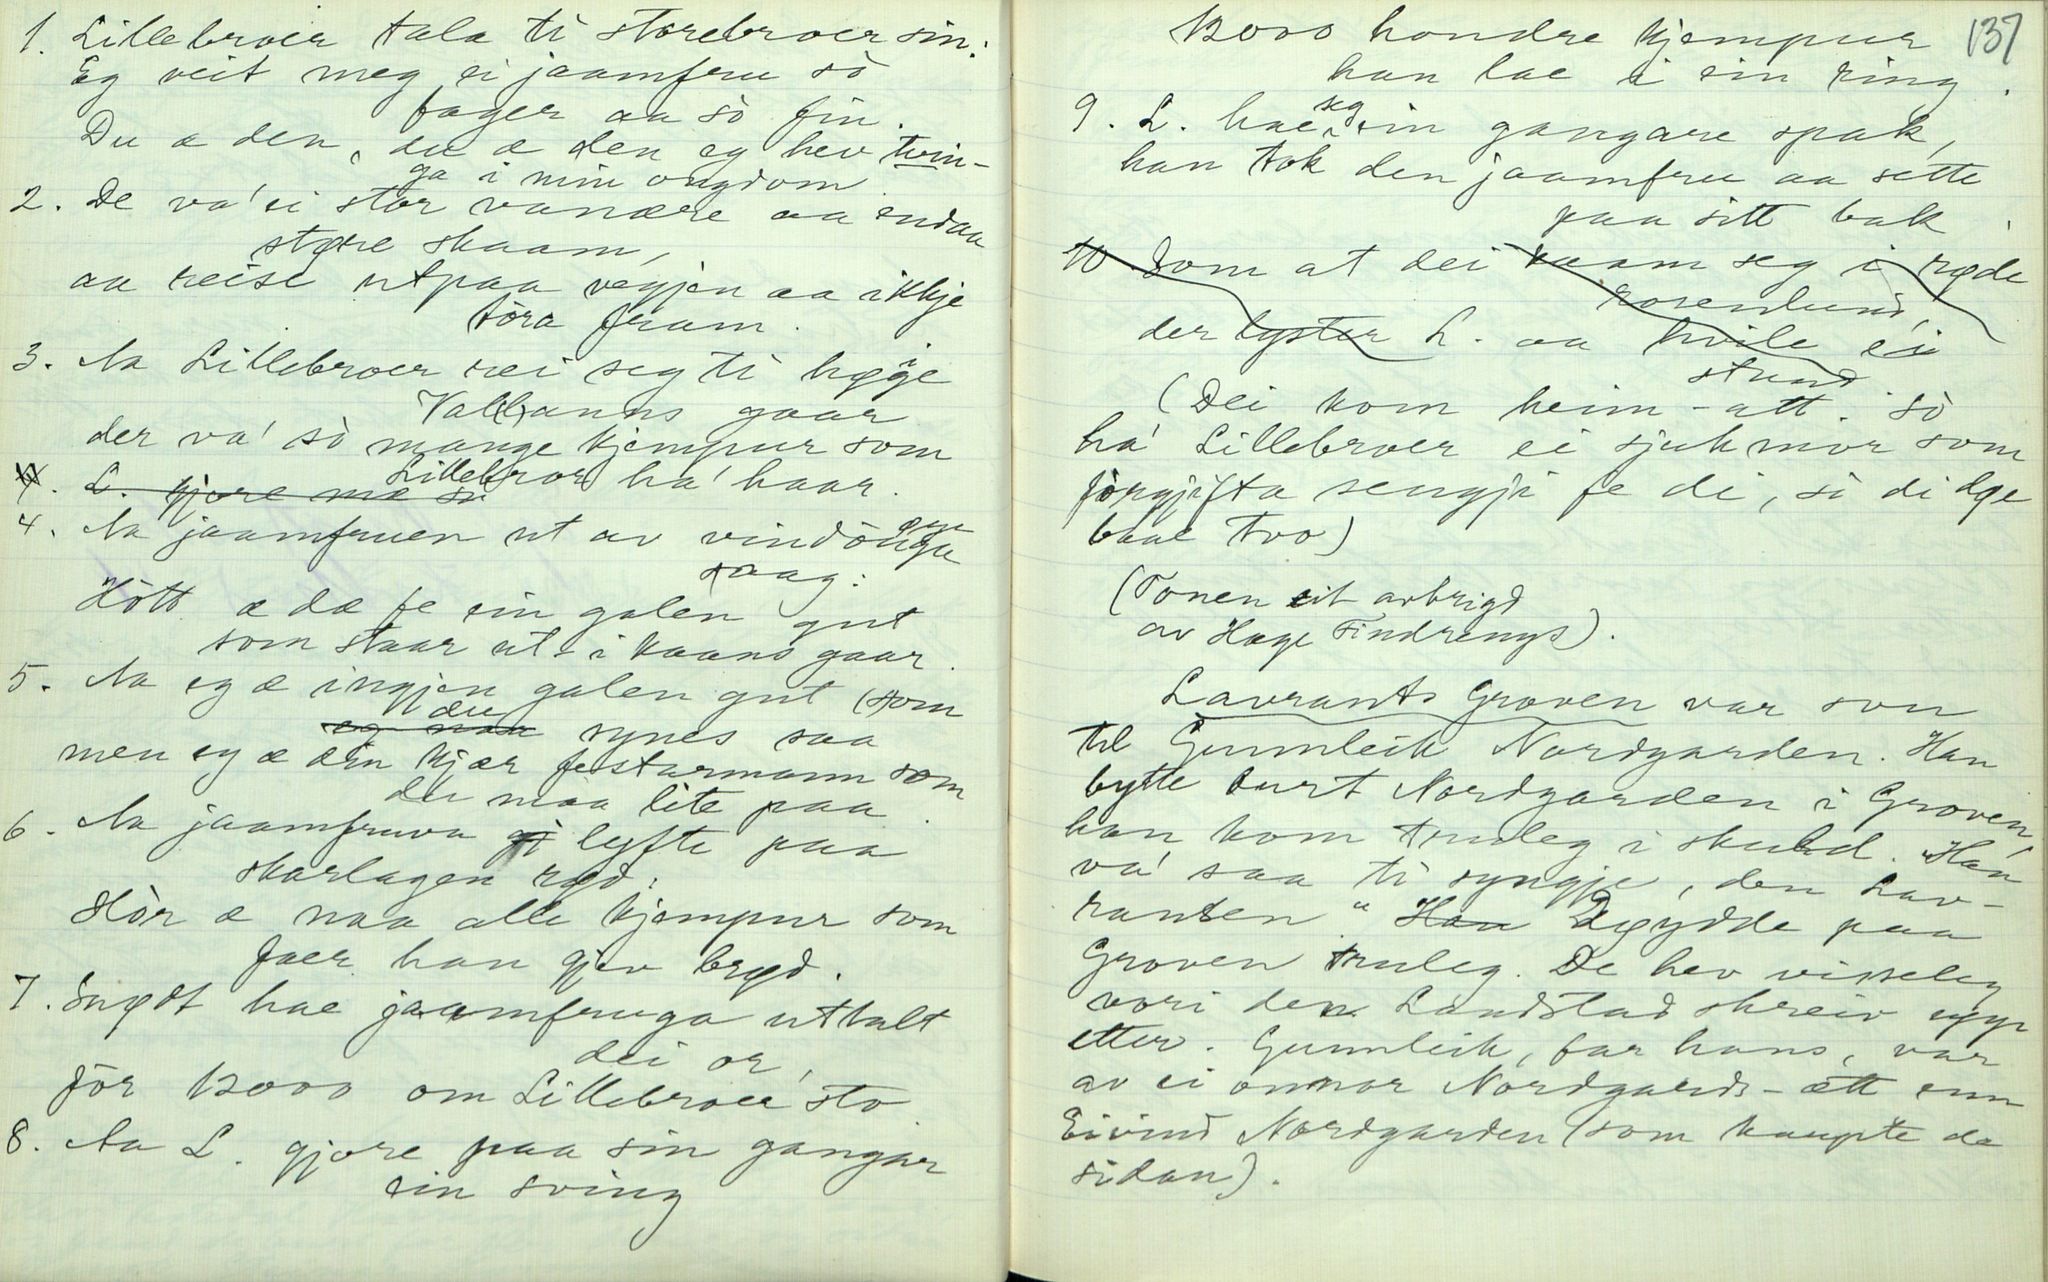 1. Lillebroer tala ti storebroer sin:
Eg veit meg ei jaamfru sò
fager aa sò fin.
Du æ den, du æ den eg hev tvin-
ga i min ongdom.
2. De va' ei stor vanære aa endaa
større skaam,
aa reise utpaa vegjen aa ikkje
tòra fram.
3. Aa Lillebroer rei seg ti høgje
Val(l)anns gaar
der va' sò mange kjempur som
Lillebroer ha' haar.
4. L. gjore mæ si
4. Aa jaamfruen ut av vindòuga
saag:
Hòtt æ dæ fe ein galen gut
som staar ut i kaans gaar.
5. Aa eg æ ingjen galen gut (som
eg maa du synes saa
men eg æ din kjær festarmann som
du maa lite paa.
6. Aa jaamfruva gj lyfte paa
skarlagen rød:
Hòr æ naa alle kjempur som
faer han gjev brød.
7. Snødt hae jaamfruga uttalt
dei or,
fòr 12000 om Lillebroer sto
8. Aa L. gjore paa sin gangar
ein sving
137
12000 hondre kjempur
han lae i sin ring.
9. L. hae seg ein gangare spak,
han tok den jaamfru aa sette
paa sitt bak.
10. Som at dei kaam seg i røde
rosenlund,
der lyster L. aa hvile ei
stund
(Dei kom heim-att. Sò
há Lillebroer ei sjuk mor som
fòrgjifta sengji fe di, so di døe
baae tvo)
(Tonen eit avbrigd
av Hage Tindrengs).
Lavrants Groven var son
til Gunnleik Nordgarden. Han
bytte burt Nordgarden i Groven,
han kom truleg i skuld. "Han
va' saa ti syngje, den Lav-
ranten." Han Døydde paa
Groven truleg. De hev visseleg
vori den Landstad skreiv upp
etter. Gunnleik, far hans, var
av ei onnor Nordgards-ætt enn
Eivind Nordgarden (som kaupte da
sidan).